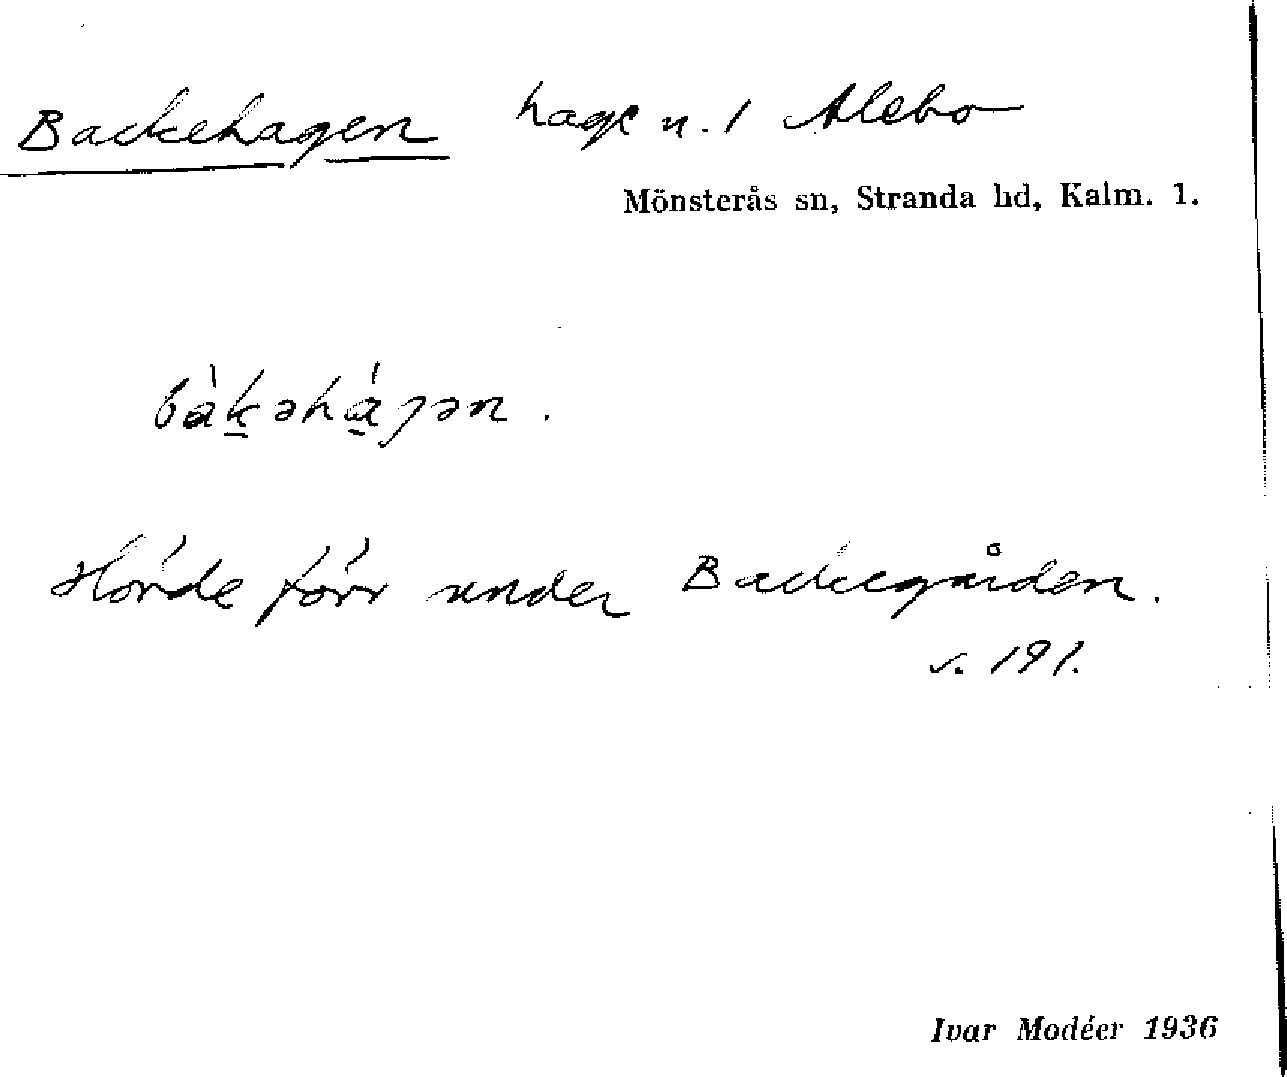 Backehagen hage n. 1 Alebo
Mönsterås sn, Stranda hd, Kalm. l.
bàkəhágən.
Hörde förr under Backegården.
s. 191.
Ivar Modéer 1936